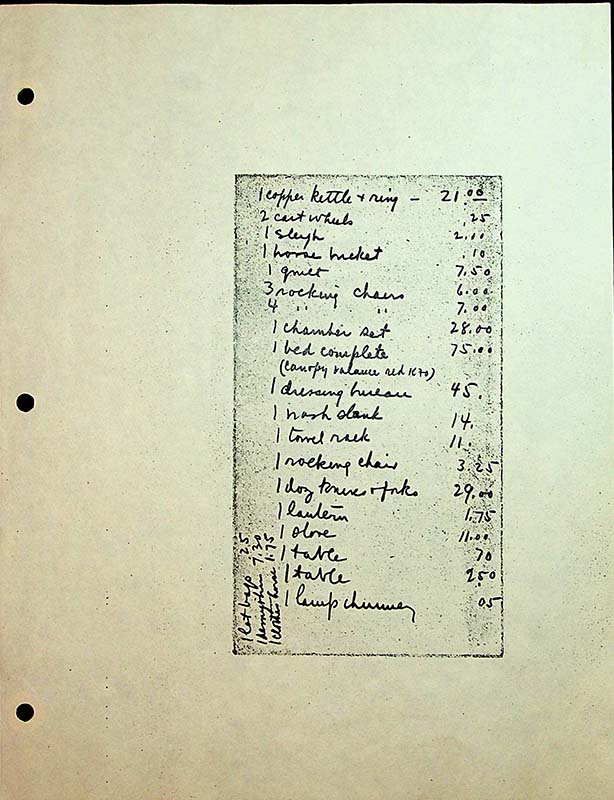 1 copper kettle + ring — 21.00
2 cart wheels .25
1 sleigh 2.00
1 horse bucket .10
1 quilt 7.50
3 rocking chairs 6.00
4 " " 7.00
1 chamber set 28.00
1 bed complete 75.00
(canopy valance red 1670)
1 dressing bureau 45.
1 wash stank 14.
1 towel rack 11.
1 rocking chair 3.25
1 doz knives + forks 29.00
1 lantern 1.75
1 stove 11.00
1 table 70
1 table 2.50
1 lamp chimney 05
1 lot bags .25
1 demijohn 7.30
1 clothes horse 1.75